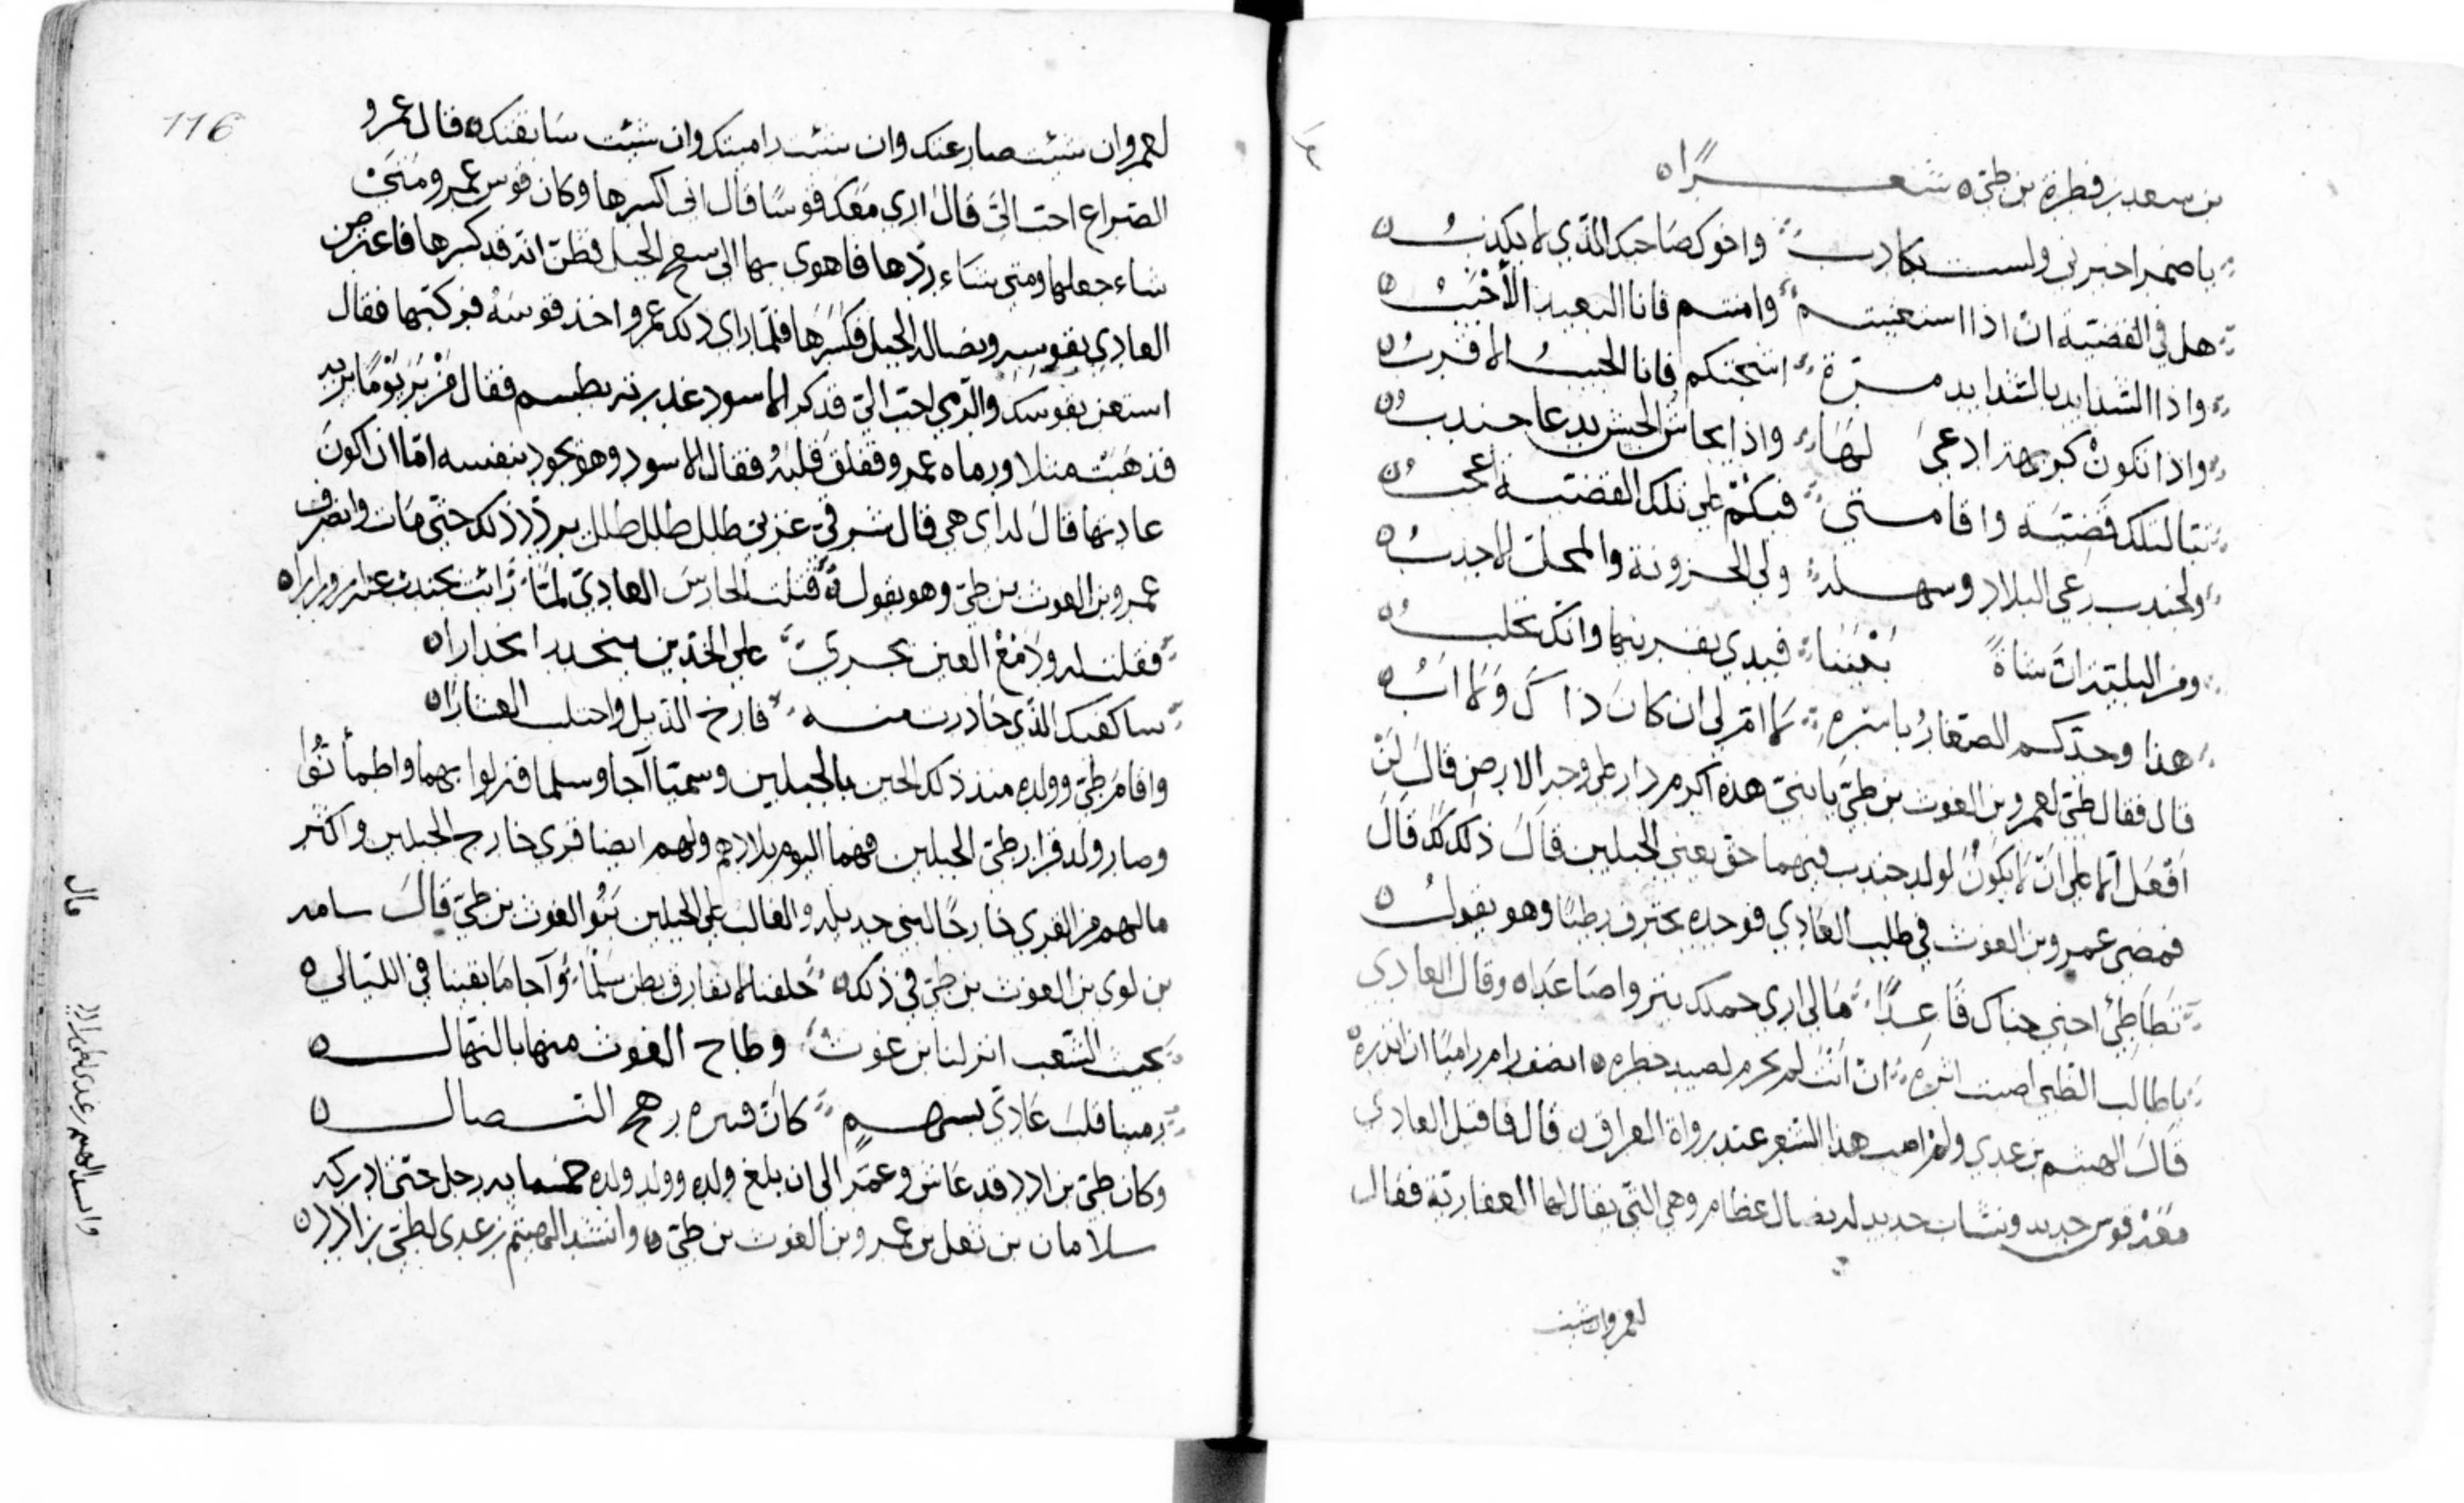 بن سعد بن فطرة بن طيء شعـــرًا ه
يا ضمر اخبرني ولست بكاذب واخوك صاحبك الذي لا يكذب ه
هل في القضية ان اذا استغنيتم وامنتم فانا البعيد الأخيب ه
واذا الشدايد بالشدايد مرة اشجتكم فانا الحبيب الاقرب ه
واذا تكون كريهة ادعى لها واذا يحاس الحيس يدعا جندب ه
تبا لتلك قضية واقامتي فيكم على تلك القضية اعجب ه
ولجندب رعي البلاد وسهله ولي الحزونة والمحل الاجدب ه
ومن البلية ان شاة بعيننا فيدي بقرنيها وانك تحلب ه
هذا وجدكم الصغار باسره لا ام لي ان كان ذاك ولا اب ه
قال فقال طيء لعمرو بن الغوث بن طيء يا بني هذه اكرم دار على وجه الارض قال لن
افعل الا على ان لا يكون لولد جندب فيهما حق يعني الجبلين قال ذلك لك قال
فمضى عمرو بن الغوث في طلب العادي فوجده يخترف رطبا وهو يقول ه
تطاطئ احني جناك قاعدًا مالي ارى حملك ينزو اصاعدا ه وقال العادي
يا طالب الظبي اصبت اثره ان انت لم تحرم لصيد خطره ه انصف رام راميا ان انذره
قال الهيثم بن عدي ولم اصب هذا الشعر عند رواة العراق ه قال فاقبل العادي
معه قوس حديد ونشاب حديد له نصال عظام وهي التي يقال لها العفارية فقال
لعمرو ان شئت
116
لعمرو ان شئت صارعتك وان شئت راميتك وان شئت سايفتك ه قال عمرو
الصراع احب الي قال ارى معك قوسًا قال اني اكسرها وكان قوس عمرو متى
شاء حعلها ومتى شاء ردّها فاهوى بها الى سفح الجبل فظن انه قد كسرها فاعترض
العادي بقوسه ونصاله الجبل فكسرها فلما راى ذلك عمرو اخذ قوسه فركبها فقال
استعن بقوسك والرمي احب الي فذكر الاسود غدرته بطسم فقال من ير يومًا ير به
فذهبت مثلا ورماه عمرو ففلق قلبه فقال الاسود وهو يجود بنفسه اما ان اكون
عادتها قال له اي هي قال شرقي غربي طلل طلل طلل يردد ذلك حتى مات وانصرف
عمرو بن الغوث بن طيء وهو يقول ه قتلت الحارس العادي لمّا رأت بجندب عنه ازورارا ه
فقلت له ودمع العين يجري على الخدين ينحدر انحدارا ه
ساكفيك الذي حاذرت منه فارخ الذيل واجتلب العشارا ه
واقام طيء وولده منذ ذلك الحين بالجبلين وسميتا آجا وسلما فنزلوا بهما واطمأنوا
وصار ولد قرار طيء الجبلين فهما اليوم بلادهم ولهم ايضا قرى خارج الجبلين واكثر
مالهم من القرى خارجًا لبني جديلة والغالب على الجبلين بنو الغوث بن طيء قال سامة
بن لوي بن الغوث بن طيء في ذلك ه حلفنا لا نفارق بطن سلما وآجا ما بقينا في الليالي ه
بجيث الشعب انزلنا بن غوث وطاح الغوث منها بالتهالـــــ ه
رمينا قلب عادي بسهم كان قتيره رهج النـصال ه
وكان طيء بن ادد قد عاش وعمّر الى ان بلغ ولده وولد ولده خمسماية رجل حتى ادركه
سلامان بن ثعل بن عمرو بن الغوث بن طيء ه وانشد الهيثم بن عدي لطيء بن ادد ن
قال
وانشد الهيثم بن عدي لطي بن ادد